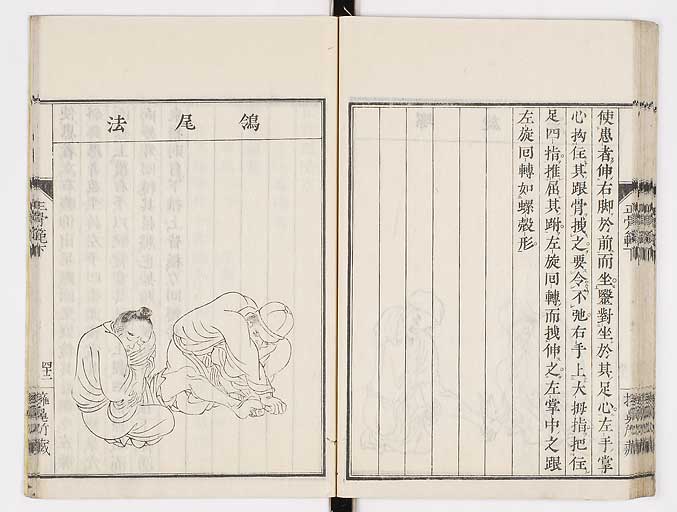 使患者伸右脚於前而坐醫對坐於其足心左手掌
心拘住其跟骨拽之要令不弛右手上大拇指把住
足四指推屈其跗左旋回轉而拽伸之左掌中之跟
左旋回轉如螺殼形
鴿尾法
正骨範下
四十二